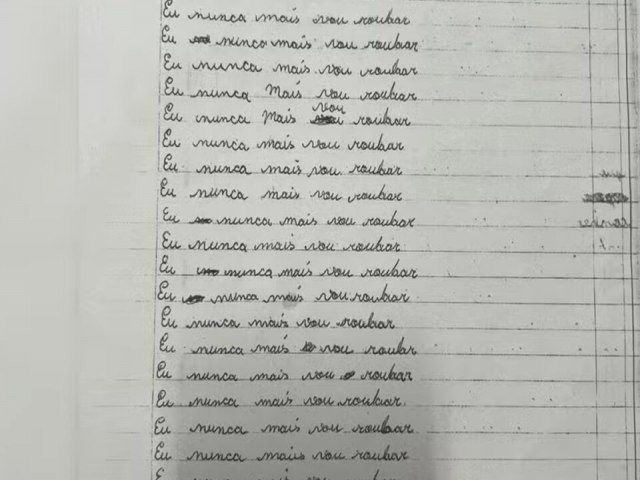 Eu nunca mais vou roubar
Eu nunca mais vou roubar
Eu nunca mais vou roubar
Eu nunca Mais vou roubar
Eu nunca Mais vou roubar
Eu nunca mais vou roubar
Eu nunca mais vou roubar
Eu nunca mais vou roubar
Eu nunca mais vou roubar
Eu nunca mais vou roubar
Eu nunca mais vou roubar
Eu nunca mais vou roubar
Eu nunca mais vou roubar
Eu nunca mais vou roubr
Eu nunca mais vou roubar
Eu nunca mais vou roubar
Eu nunca mais vou roubar
Eu nunca mais vou roubar